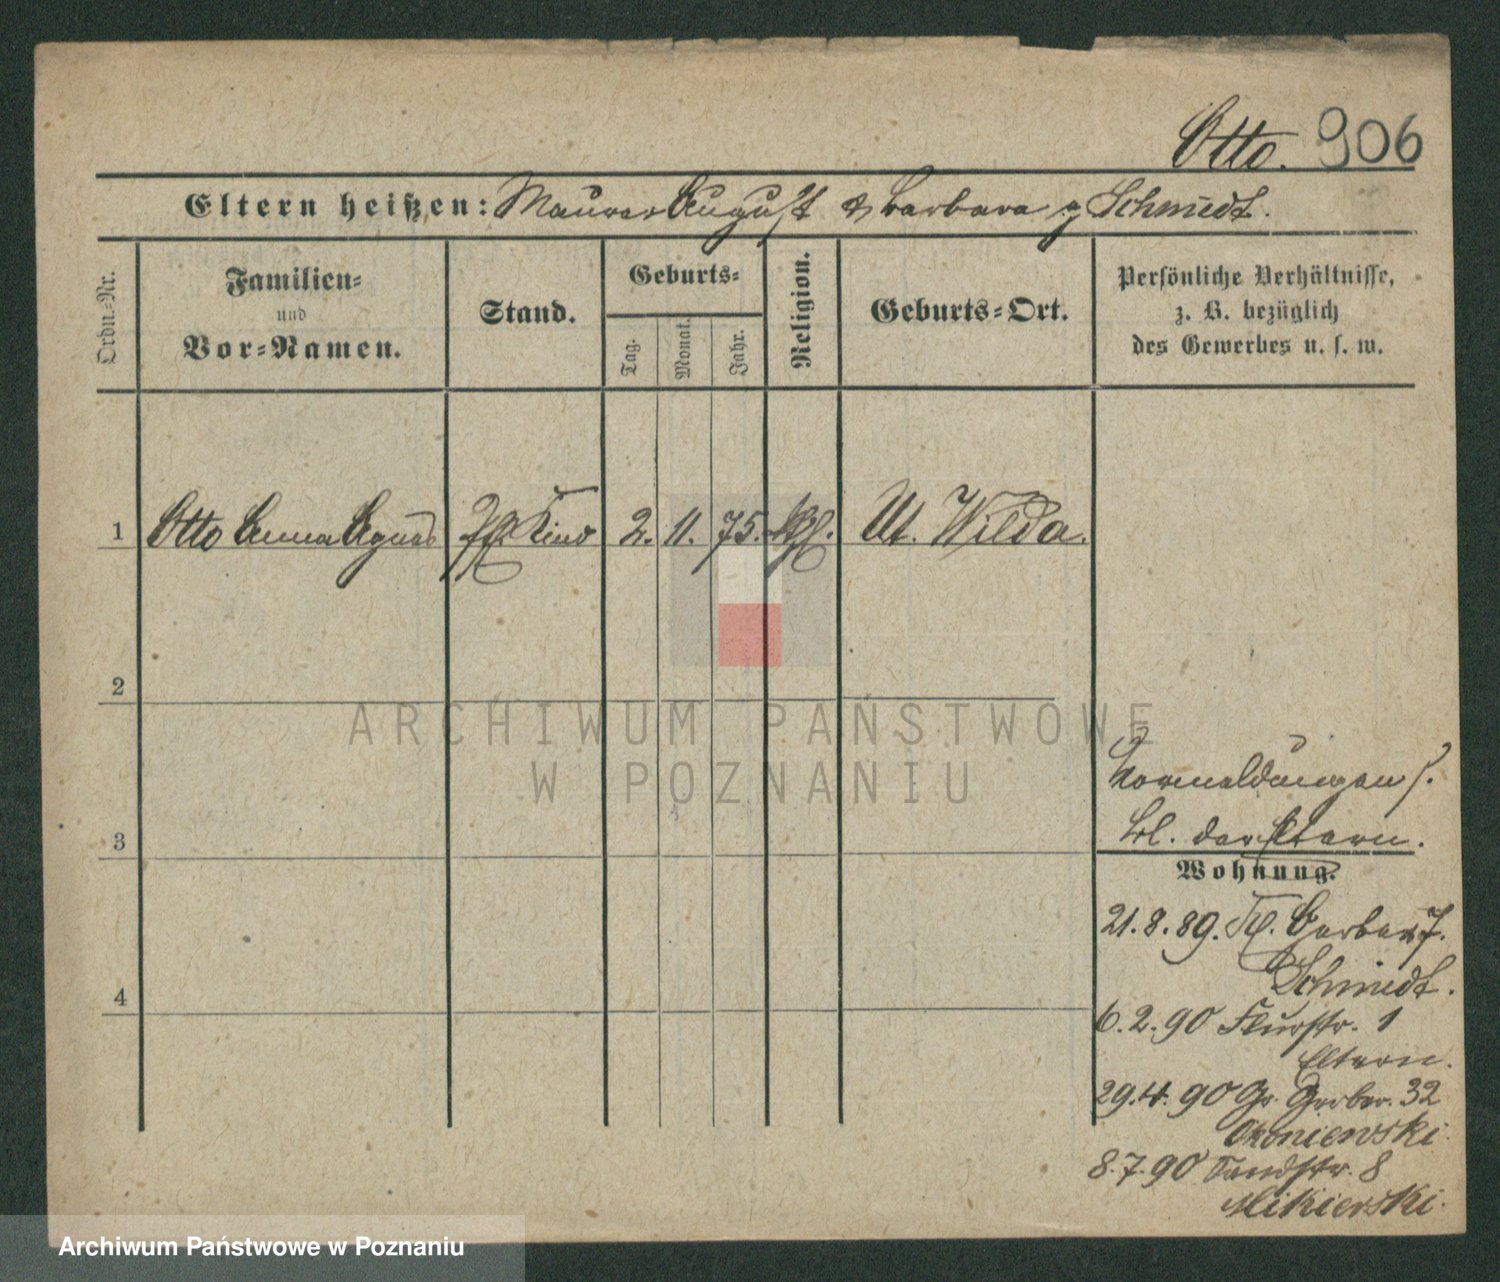 Otto. 906
Eltern heißen: Maurer August & Barbara g Schmidt.
Ordn.-Nr.
Familien-
und
Vor-Namen.
Stand.
Geburts-
Tag.
Monat.
Jahr.
Religion.
Geburts-Ort.
Persönliche Verhältnisse,
z. B. bezüglich
des Gewerbes u. s. w.
1 Otto Anna Agnes Kind 2. 11. 75. Ut. Wilda.
2
3
4
ARCHIWUM PAŃSTWOWE
W POZNANIU
Vormeldungen s.
bl. der Eltern.
Wohnung.
21. 8. 89. Kl. Gerber 7.
Schmidt.
6. 2. 90 Flurstr. 1
Eltern.
29. 4. 90 Gr. Gerber. 32
8. 7. 90 Sandstr. 8
Mikierski.
Archiwum Państwowe w Poznaniu